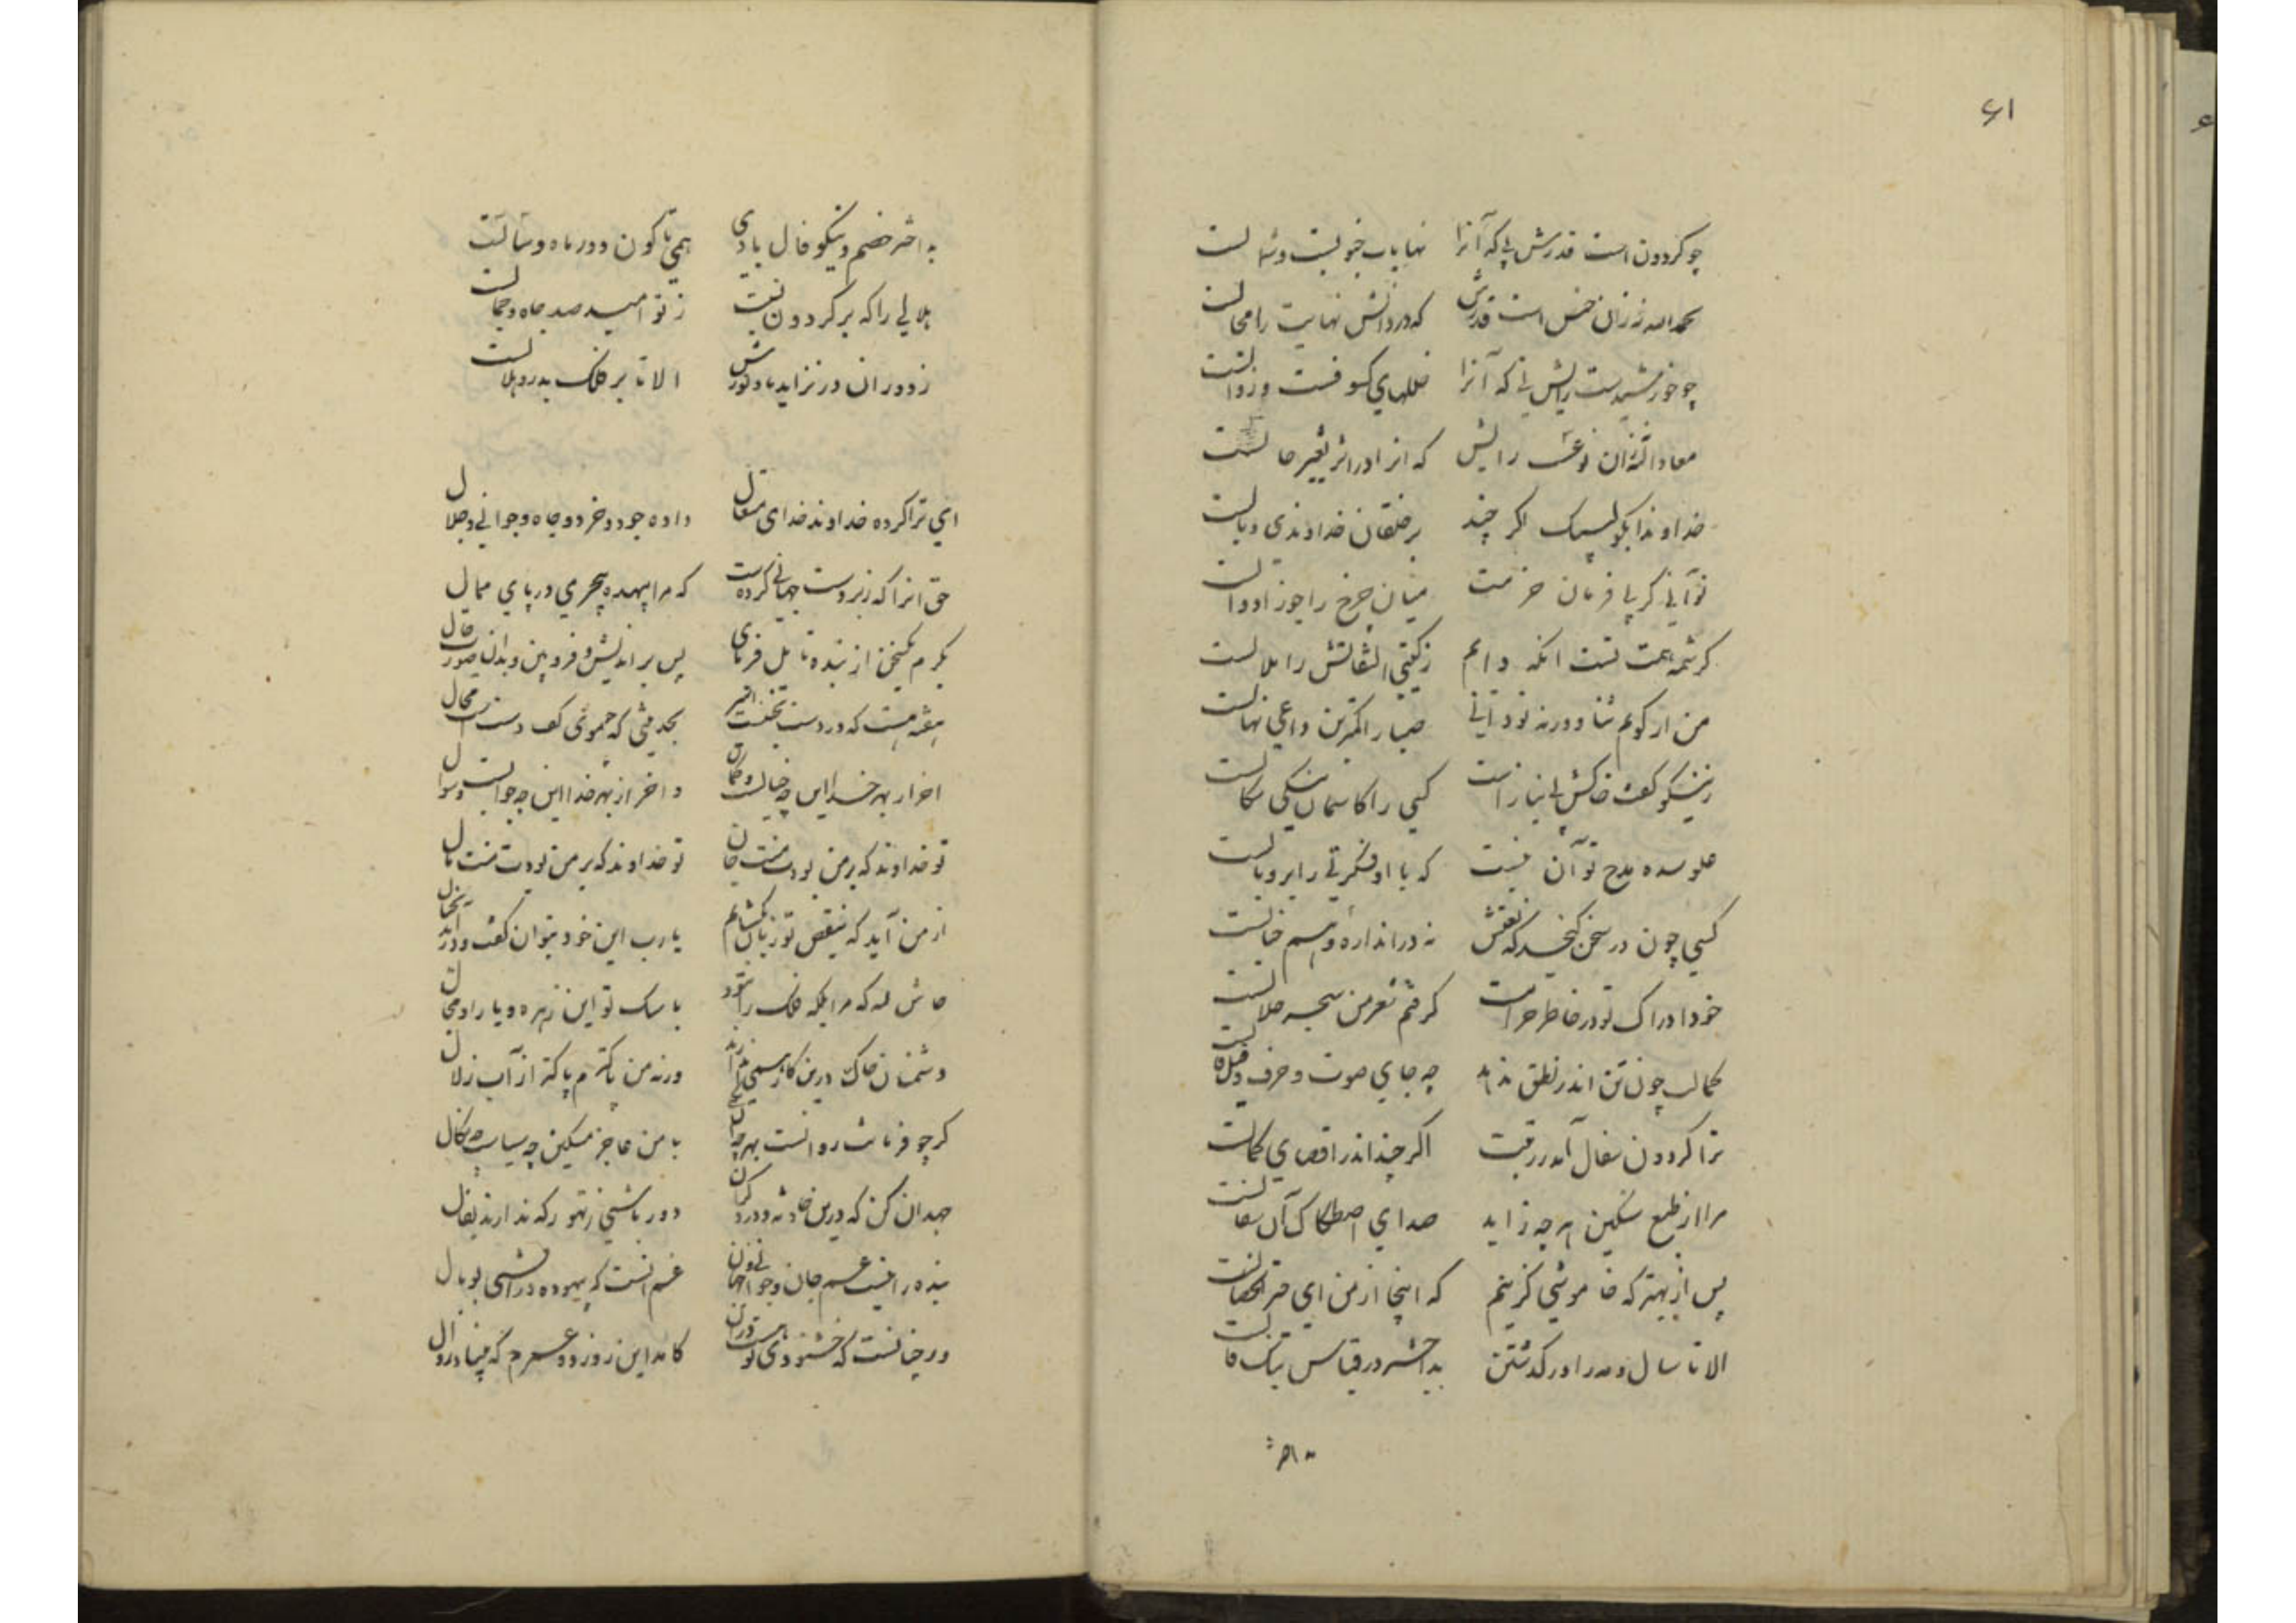 ۶۱
چو کردون است قدرش نی که آنرا نهایات جنوبست و شمالست
بحمدالله نه زان جنس است قدرش که در ذاتش نهایت را مجالست
چو خورشیدست رایش نی که آنرا خللهای کسوفست و زوالست
معاذالله نه زان نوعست رایش که انرا در اثر تغییر حالست
خداوندا بگویم لیک اگر چند بر خلقان خداوندی وبالست
تو آنی کز پی فرمان جزمت میان چرخ را جوزا دوالست
کرشمه همت تست انکه دایم ز گیتی التفاتش را ملالست
من ار گویم ثنا ورنه تو دانی صبا را کمترین داعی نهالست
ز نیکو گفت خاکش بی نیازست کسی را کاسمان نیکی سکالست
مدح تو آن نیست که با او فکرتی را پر و بالست
کسی چون در سخن گنجد که نعتش نه در اندازه وهم و خیالست
خود ادراک تو در خاطر حرامست گرفتم شعر من سحر حلالست
کمالت چون تن اندر نطق ندهد چه جای صوت و حرف و قیل و قالست
ترا گردون سفال آمد ز رفعت اگر چند اندر اقصای کمالست
مرا از طبع سنگین هر چه زاید صدای اصطکاک آن سفالست
پس آن بهتر که خاموشی گزینم که اینجا از من این خیر الخصالست
الا تا سال و مه را در گذشتن بد اختر در قیاس نیک فالست
به اختر خصم و نیکو فال بادی همی تا کون و دور ماه و سالست
هلالی را که بر گردون نیست ز تو امید صد جاه و جمالست
ز دوران در تزاید باد نورش الا تا بر فلک بدر و هلالست
ای ترا کرده خداوند خدای متعال داده جود و خرد و جاه و جوانی و جلال
حق انرا که زبردست جهانی کردست که مرا بیهده پی در پای ممال
بکرم یکسخن از بنده تامل فرمای پس براندیش و فرو بین و بدان صورت حال
بحدیثی که خموشی کف دست محال
اخر از بهر خدا این چه خیالست و گمان و اخر از بهر خدا این چه جوابست و سوال
تو خداوند که بر من بودت منت جان تو خداوند که بر من بودت منت مال
از من آید که بنقص تو زبان بگشایم یارب این خود بتوان گفت و در آید بخیال
حاش لله که مرا بلکه فلک را نبود با سگ تو این زهره و یارا و مجال
دشمنان خاک درین کار همی اندازند ورنه من پاکترم پاکتر از آب زلال
گر چو فرمانت روانست بهر چه با من عاجز مسکین چه سیاست چه نکال
جهد آن کن که درین حادثه دور باشی ز تهور که ندارند بفال
بنده را نیست غم جان و جوانی و جهان غم آنست که بیهوده در افتی بوبال
ور چنانست که خشنودی تو کامد این روز و غمم که پیمود زوال